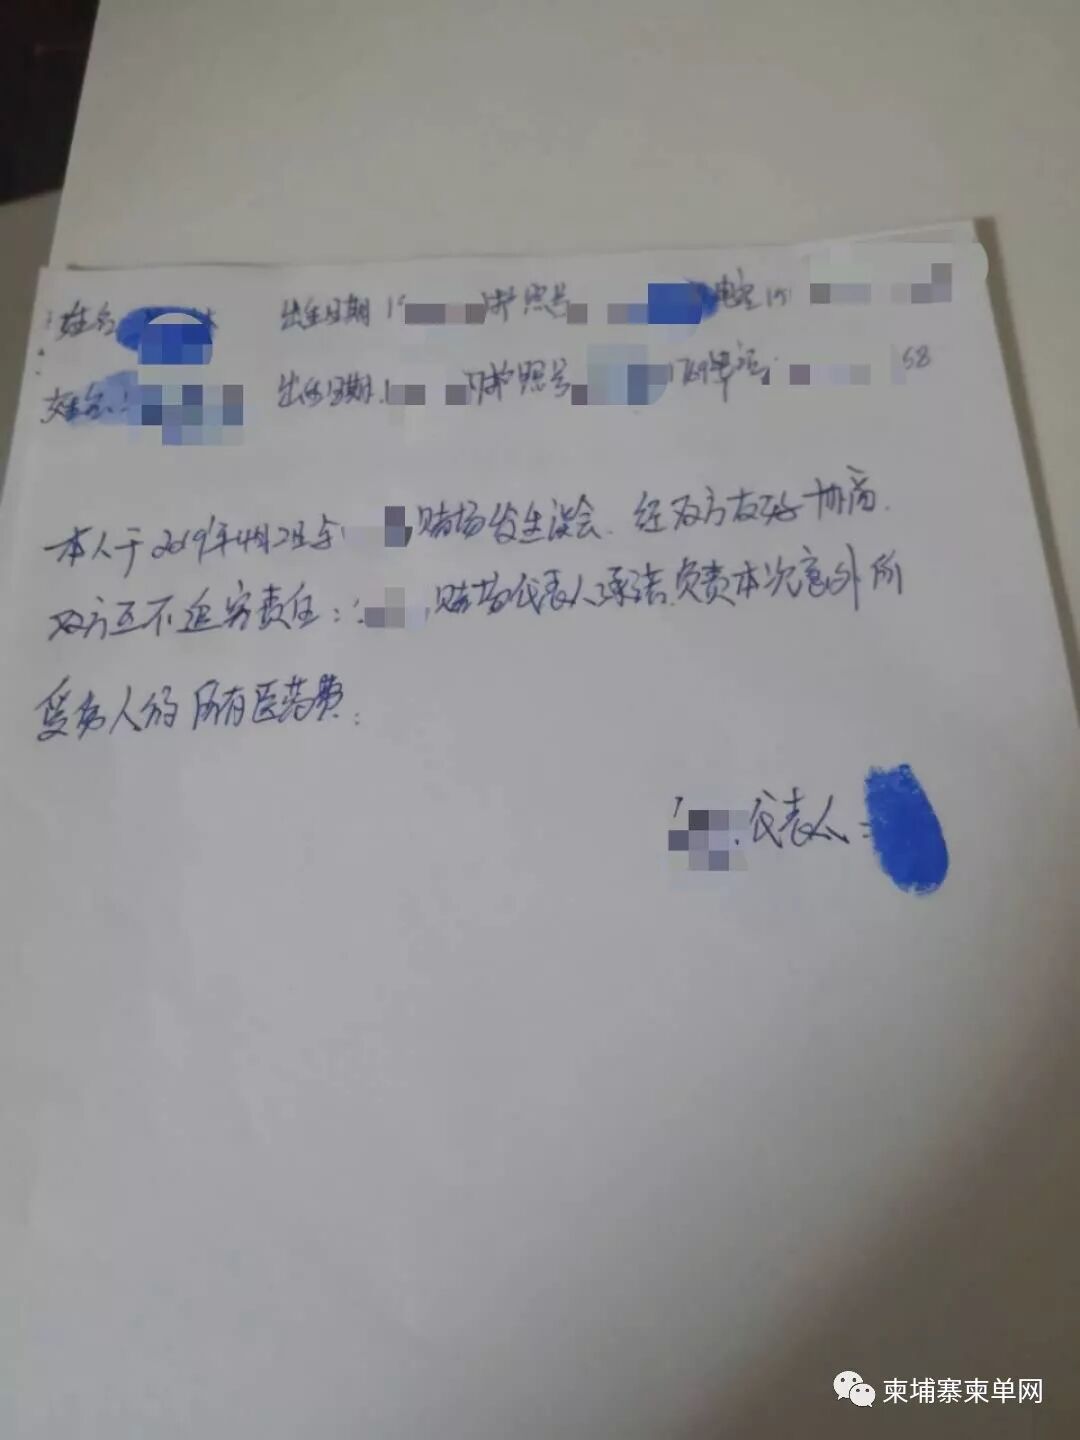 姓名
出生日期 护照号 电话 15
姓名: 出生日期. 护照号 电话: 58
本人于2019年4月2日与 赌场发生误会、经双方友好协商.
双方互不追究责任: 赌场代表人承诺.负责本次意外所
受伤人的所有医药费.
代表人:
柬埔寨柬单网